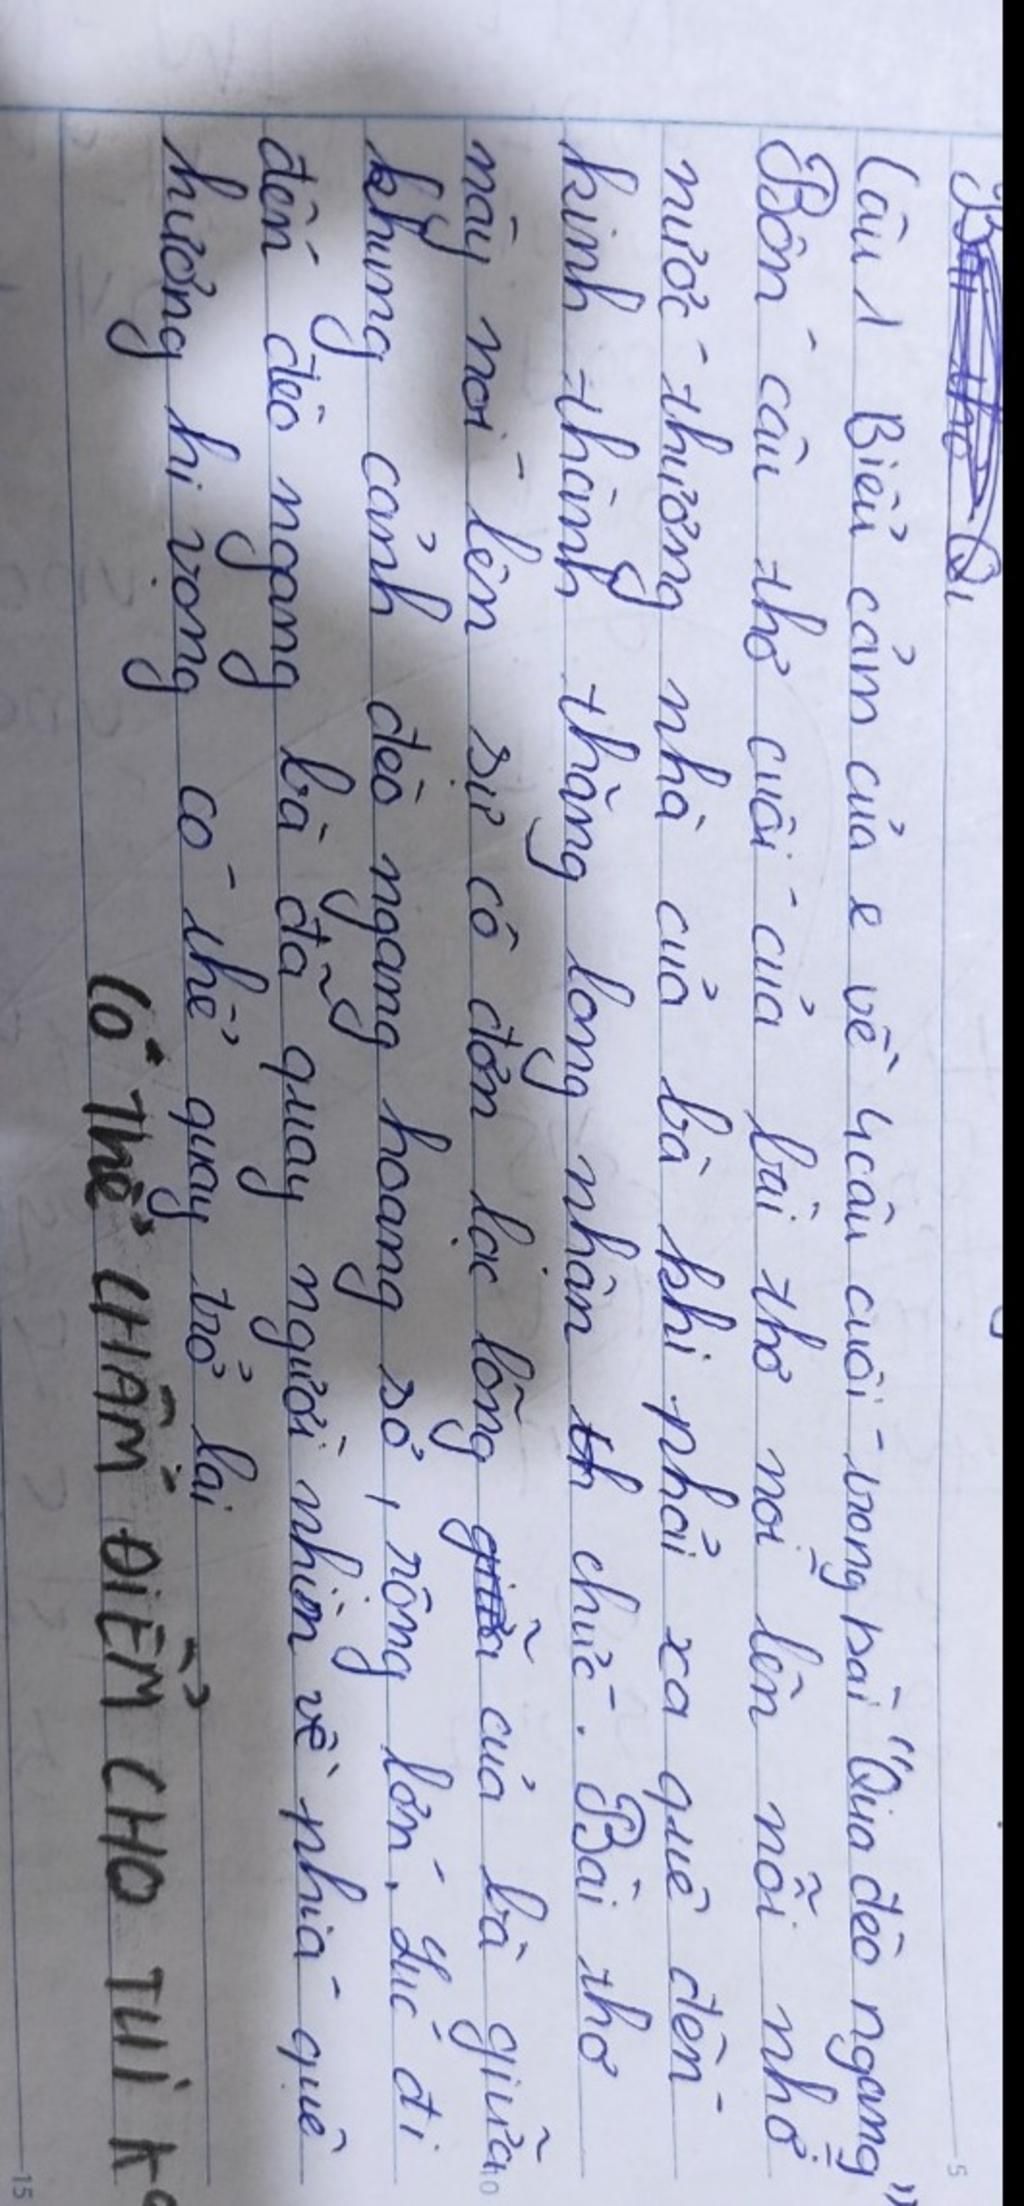 Câu 1 Biểu cảm của e về 4 câu cuối trong bài "Qua đèo ngang"
Bốn câu thơ cuối của bài thơ nói lên nỗi nhớ
nước thương nhà của bà khi phải xa quê đến
kinh thành thăng long nhận chức. Bài thơ
này nói lên sự cô đơn lạc lõng của bà giữa
khung cảnh đèo ngang hoang sơ, rông lớn. Lúc đi
đến đèo ngang bà đã quay người nhìn về phía quê
hương hi vọng có thể quay trở lại
CÓ THỂ CHẤM ĐIỂM CHO TUI
5
10
15